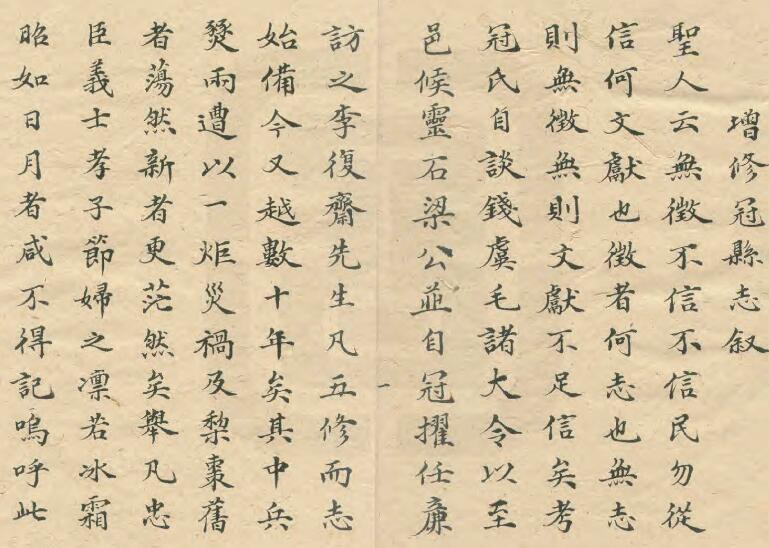 增修冠縣志叙
聖人云無徵不信不信民勿從
信何文獻也徵者何志也無志
則無徵無則文獻不足信矣考
冠氏自談錢虞毛諸大令以至
邑候靈石梁公並自冠擢任廉
訪之李復齋先生凡五修而志
始備今又越數十年矣其中兵
燹兩遭以一炬災禍及棃棗舊
者蕩然新者更茫然矣舉凡忠
臣義士孝子節婦之凛若冰霜
昭如日月者咸不得記嗚呼此
一